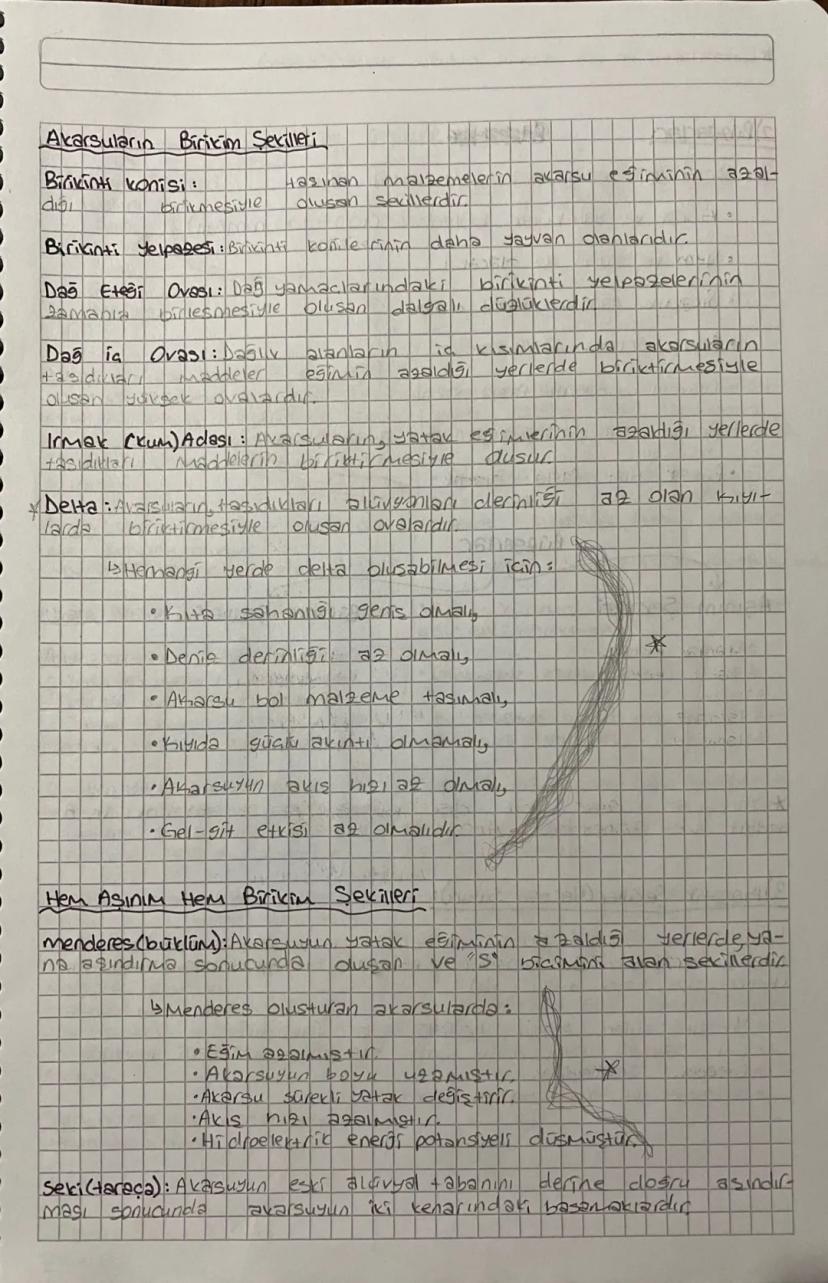 Akarsuların Birikim Şekilleri
Birikinti konisi: taşınan malzemelerin akarsu eğiminin azal-
dığı birikmesiyle oluşan şekillerdir.
Birikinti yelpazesi: Birikinti konilerinin daha yayvan olanlarıdır.
Dağ Eteği Ovası: Dağ yamaclarındaki birikinti yelpazelerinin
zamanla birleşmesiyle oluşan dalgalı düzlüklerdir
Dağ içi Ovası: Dağlık alanların iç kısımlarında akarsuların
taşıdıkları maddeler eğimin azaldığı yerlerde biriktirmesiyle
oluşan yüksek ovalardır.
Irmak (kum) Adası: Akarsuların, yatak eğimlerinin azaldığı yerlerde
taşıdıkları maddelerin biriktirmesiyle oluşur
* Delta: Akarsuların, taşıdıkları alüvyonları derinliği az olan kıyı-
larda biriktirmesiyle oluşan ovalardır.
↳ Herhangi yerde delta oluşabilmesi için:
• Kıta sahanlığı geniş olmalı,
• Deniz derinliği az olmalı,
• Akarsu bol malzeme taşımalı,
• Kıyıda güçlü akıntı olmamalı,
*
• Akarsuyun akış hızı az olmalı,
• Gel-git etkisi az olmalıdır.
Hem Aşınım Hem Birikim Şekilleri
menderes(büklüm): Akarsuyun yatak eğiminin azaldığı yerlerde, ya-
na aşındırma sonucunda oluşan ve "S" biçimini alan şekillerdir
↳ Menderes oluşturan akarsularda:
• Eğim azalmıştır.
• Akarsuyun boyu uzamıştır.
*
• Akarsu sürekli yatak değiştirir.
• Akış hızı azalmıştır.
• Hidroelektrik enerji potansiyeli düşmüştür.
Seki(taraça): Akarsuyun eski alüvyal tabanını derine doğru aşındır-
ması sonucunda akarsuyun iki kenarındaki basamaklardır.